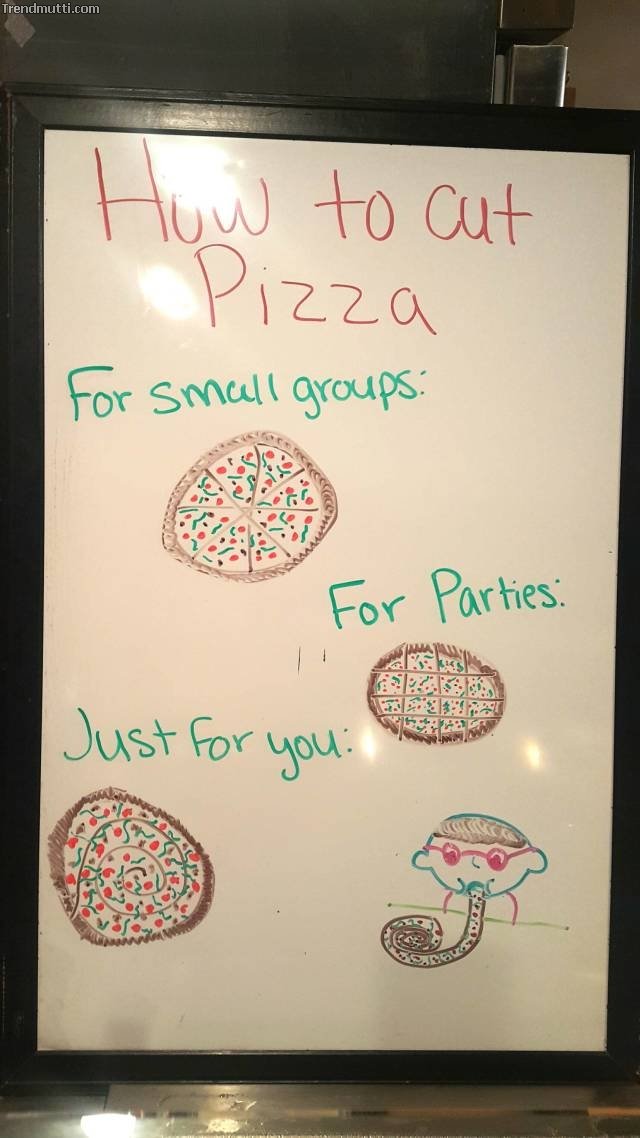 Trendmutti.com
How to cut
Pizza
For small groups:
For Parties:
Just for you: